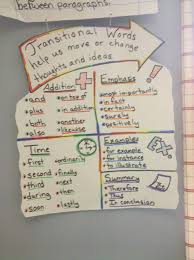 between paragraphs.
Transitional Words
help us move or change
thoughts and ideas
Addition
• and • on top of
• plus • in addition
• both • another
• also • likewise
Emphasis
• most importantly
• in fact
• certainly
• surely
• positively
Time
• first • ordinarily
• second • finally
• third • next
• during • then
• soon • lastly
Examples
• for example
• for instance
• to illustrate
EX:
Summary
• Therefore
• Thus
• In conclusion